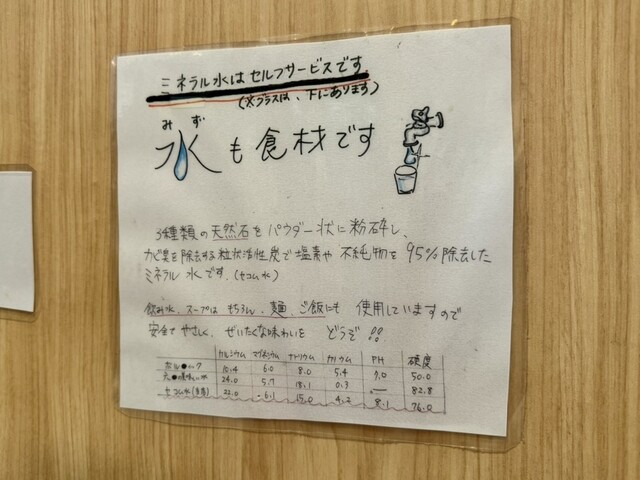 ミネラル水はセルフサービスです
(※グラスは、下にあります)
みず
水も食材です
3種類の天然石をパウダー状に粉砕し、
カビ臭を除去する粒状活性炭で塩素や不純物を95%除去した
ミネラル水です。(セコム水)
飲み水、スープはもちろん、麺、ご飯にも使用していますので
安全でやさしく、ぜいたくな味わいをどうぞ!!
カルシウム マグネシウム ナトリウム カリウム PH 硬度
ボル●ック 10.4 6.0 8.0 5.4 7.0 50.0
六●の美味しい水 24.0 5.7 18.1 0.3 — 82.8
セコム水 22.0 6.1 15.0 4.2 8.1 76.0